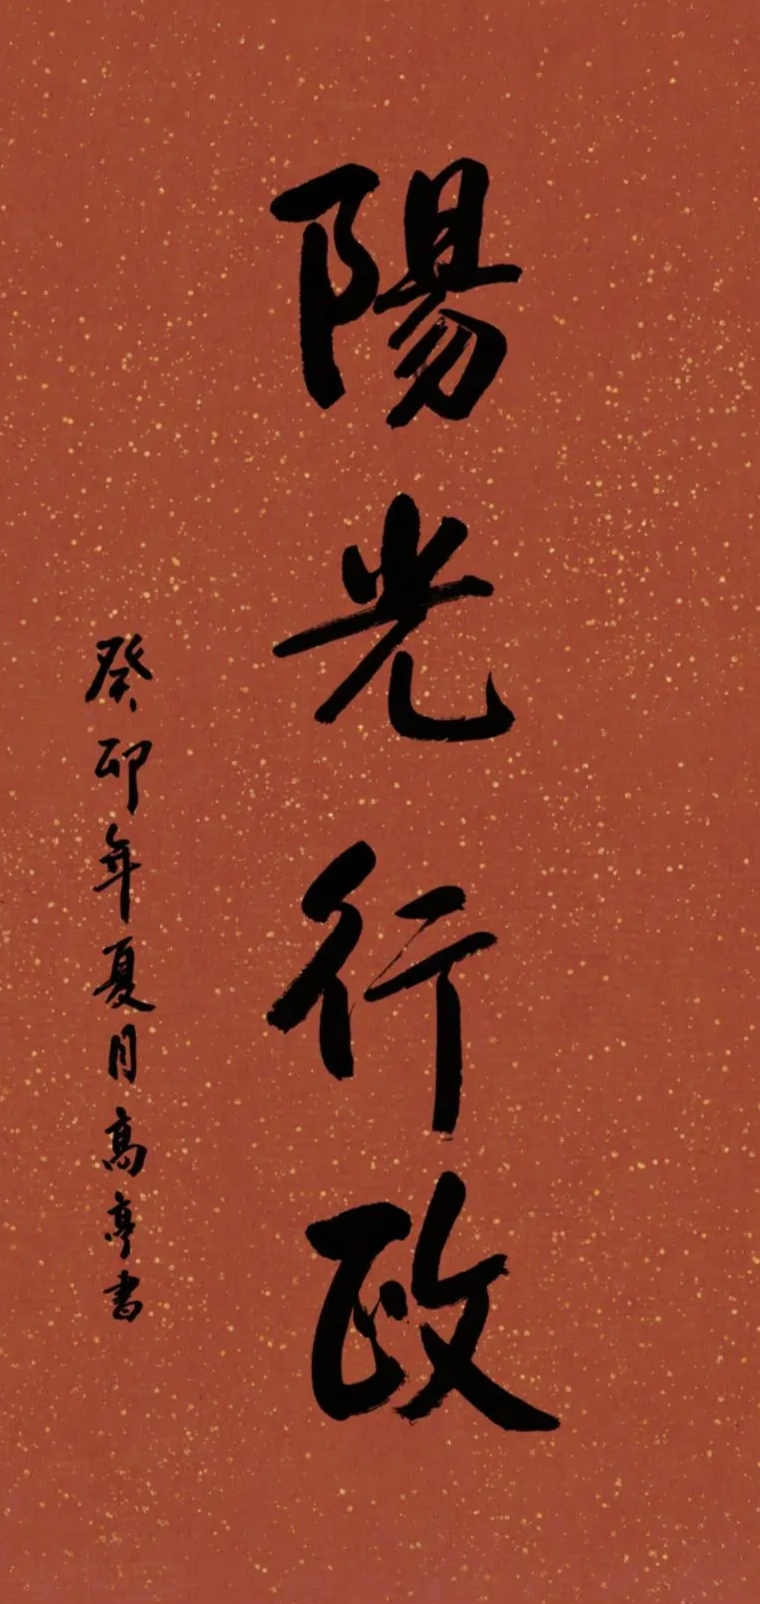 陽光行政
癸卯年夏月高亭書